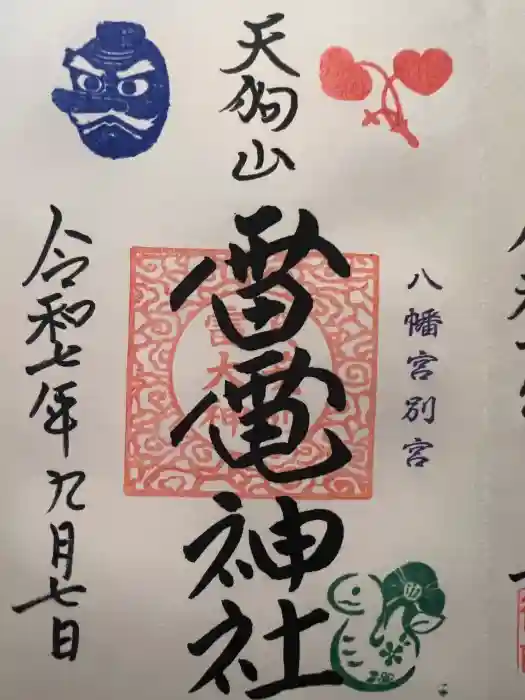 天狗山
八幡宮別宮
雷電神社
令和七年九月七日